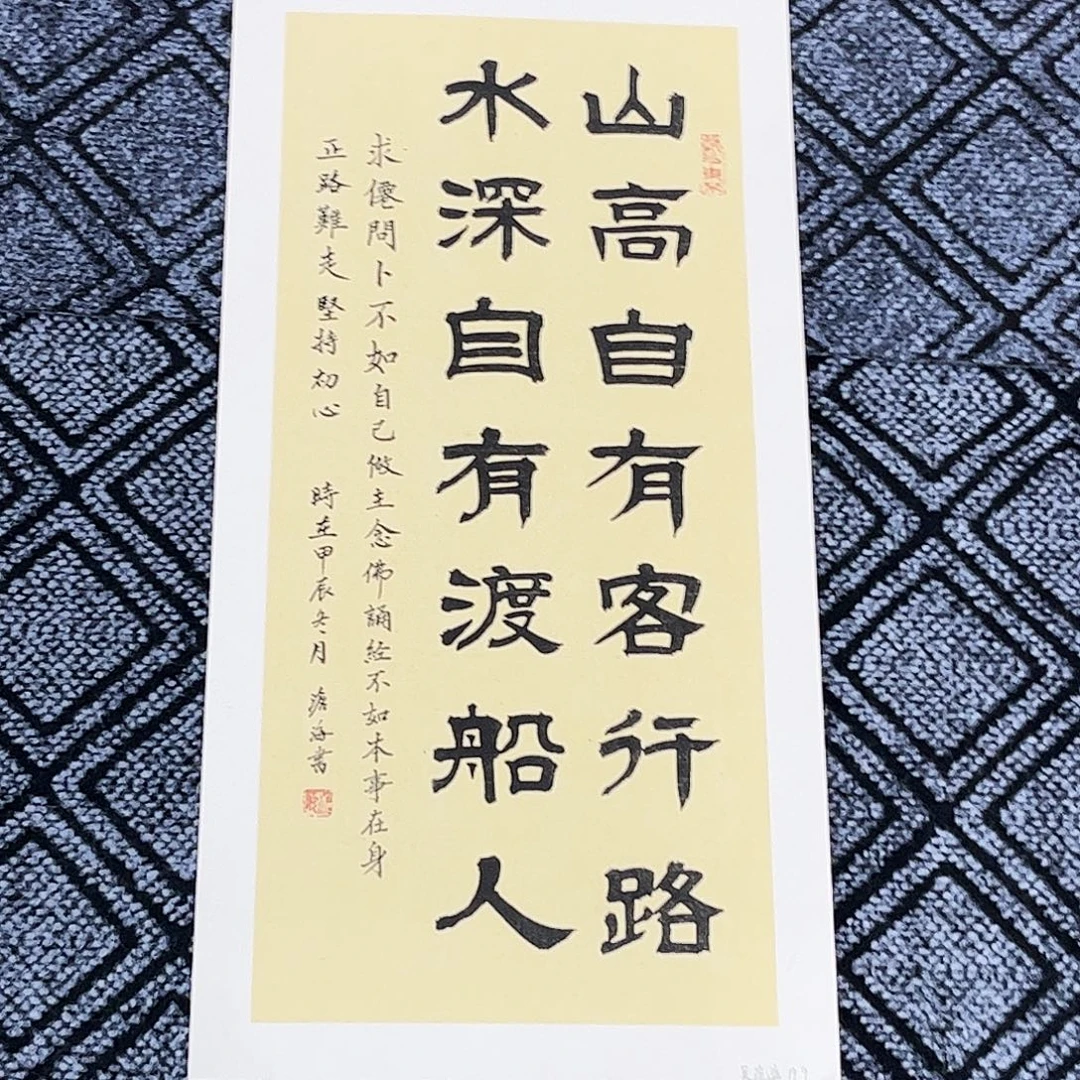 山高自有客行路
水深自有渡船人
求僊問卜不如自己做主念佛誦經不如本事在身
正路難走堅持初心 時在甲辰冬月 海書